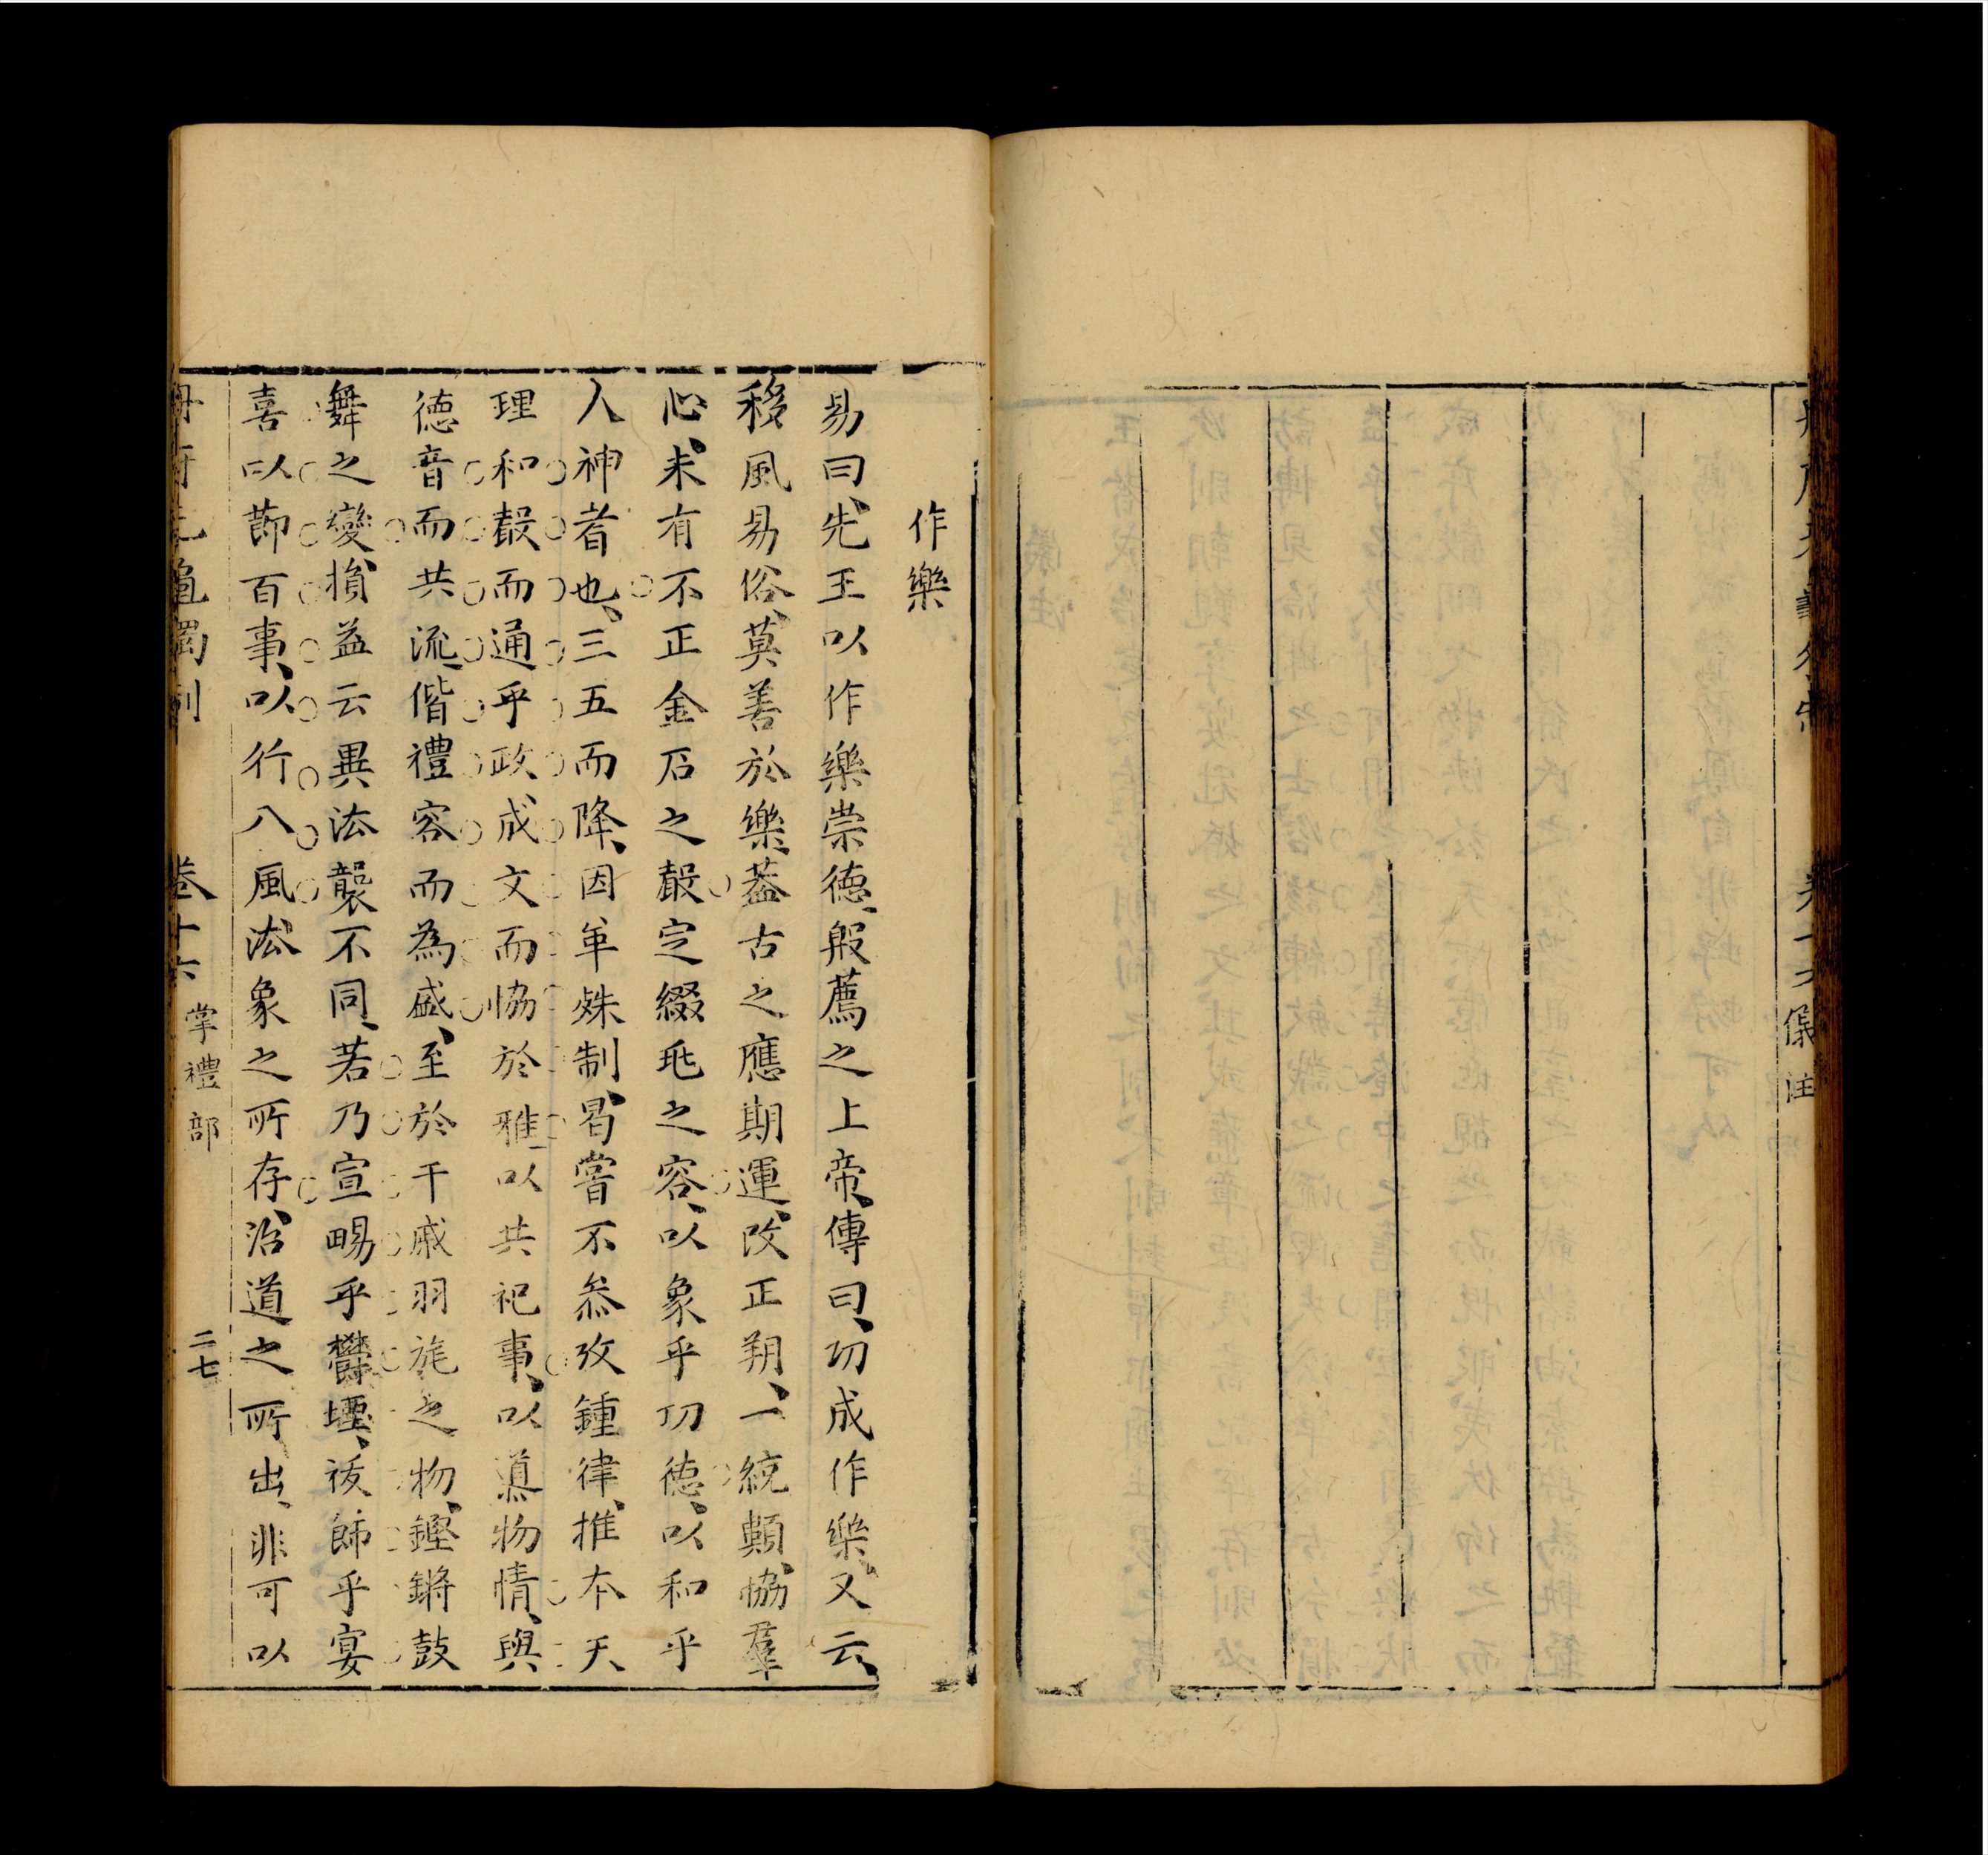 儀注
作樂
易曰、先王以作樂崇德、殷薦之上帝、傳曰、功成作樂、又云、
移風易俗、莫善於樂、葢古之應期運、改正朔、一統類、協羣
心、未有不正金石之聲定綴兆之容、以象乎功德、以和乎
人神者也、三五而降、因革殊制、曷嘗不叅攷鍾律、推本天
理和聲而通乎政、成文而協於雅、以共祀事、以導物情、與
德音而共流、偕禮容而為盛、至於干戚羽旄之物、鏗鏘鼓
舞之變、損益云異、法襲不同、若乃宣暢乎鬱堙、祓飾乎宴
喜、以節百事、以行八風、法象之所存、治道之所出、非可以
冊府元龜獨制 卷十六 掌禮部 二七